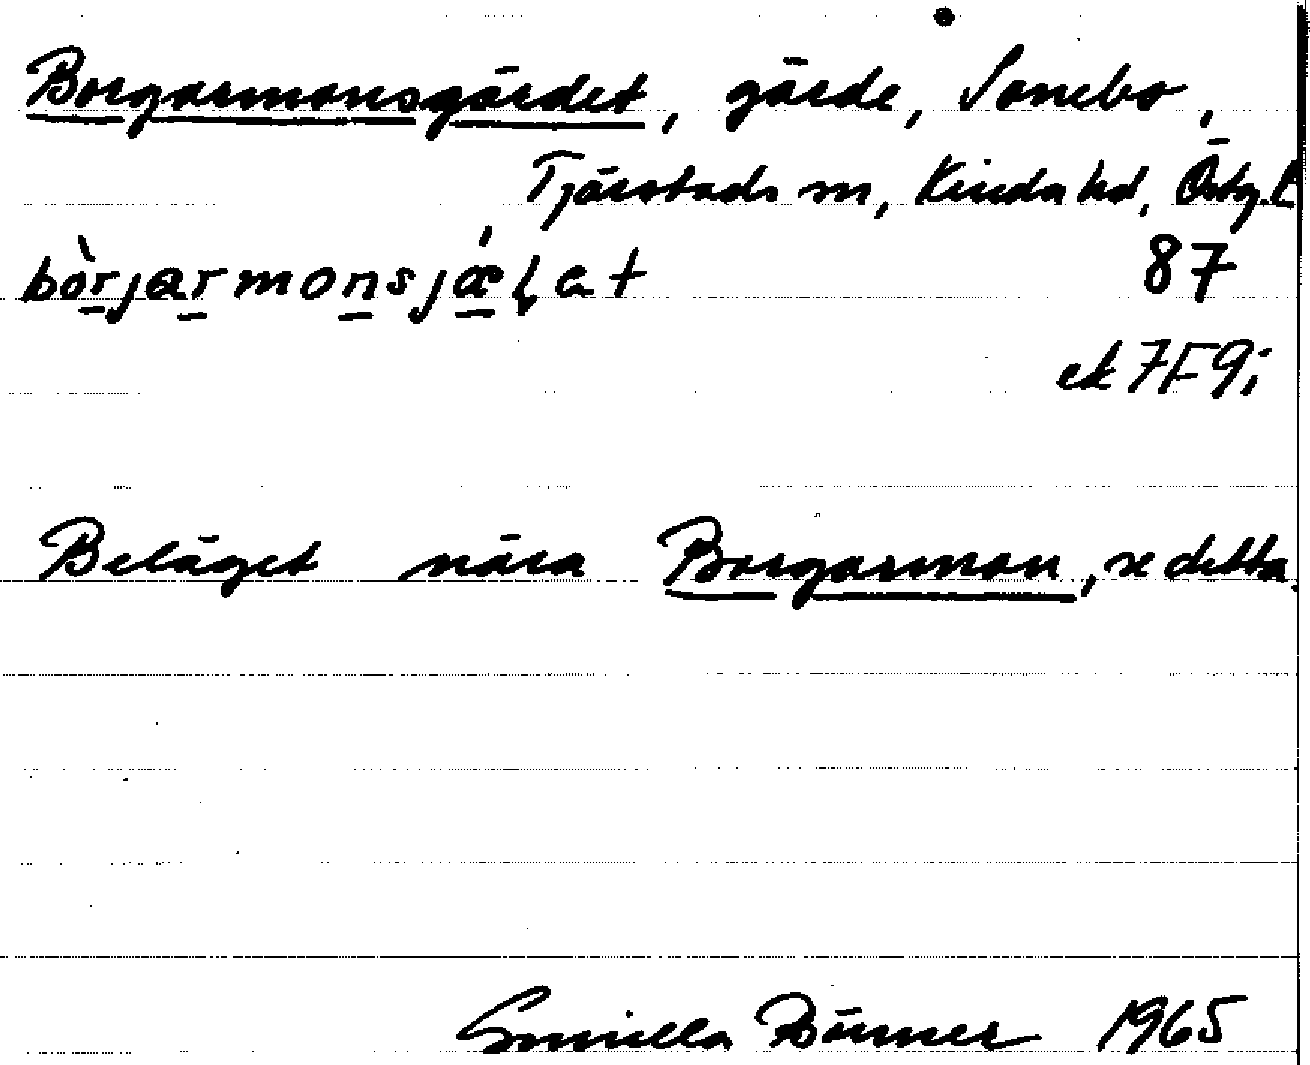 Borgarmonsgärdet, gärde, Sonebo,
Tjärstads sn, Kinda hd, Östg.l
bòrjarmonsjǽɽat
87
ek 7F9i
Beläget nära Borgarmon, se detta.
Gunilla Börner 1965